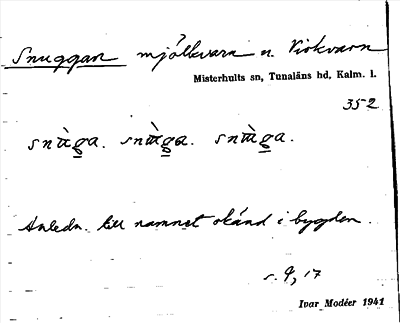 Snuggan mjölkvarn n. Viskvarn
Misterhults sn, Tunaläns hd, Kalm. l.
352
Anledn. till namnet okänd i bygden.
s. 9, 17
Ivar Modéer 1941